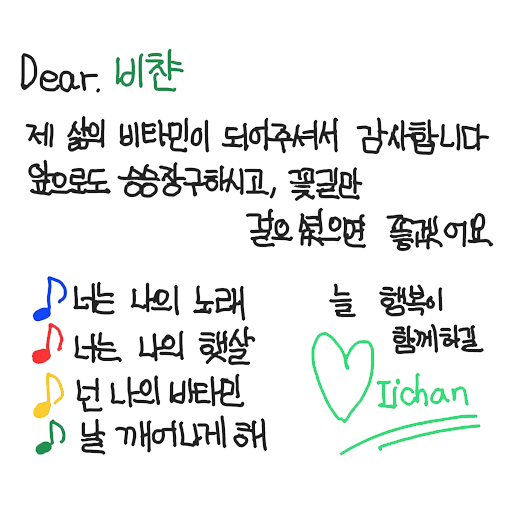 Dear. 비챤
제 삶의 비타민이 되어주셔서 감사합니다
앞으로도 승승장구하시고, 꽃길만
걸으셨으면 좋겠어요
너는 나의 노래
너는 나의 햇살
넌 나의 비타민
날 깨어나게 해
늘 행복이
함께하길
Iichan